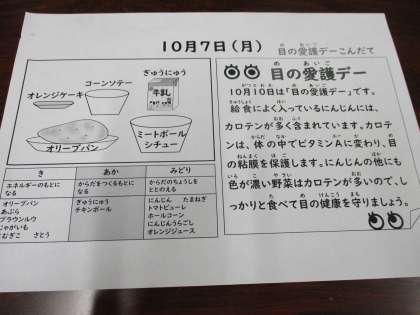 10月7日(月) 目の愛護デーこんだて
ぎゅうにゅう
コーンソテー
オレンジケーキ
牛乳
オリーブパン
ミートボール
シチュー
目の愛護デー
10月10日は「目の愛護デー」です。
給食によく入っているにんじんには、
カロテンが多く含まれています。カロテ
ンは、体の中でビタミンAに変わり、目
の粘膜を保護します。にんじんの他にも
色が濃い野菜はカロテンが多いので、し
っかりと食べて目の健康を守りましょう。
き あか みどり
エネルギーのもとに
なる
からだをつくるもとに
なる
からだのちょうしを
ととのえる
オリーブパン
あぶら
ブラウンルウ
じゃがいも
こむぎこ さとう
ぎゅうにゅう
チキンボール
にんじん たまねぎ
トマトピューレ
ホールコーン
にんじんうらごし
オレンジジュース